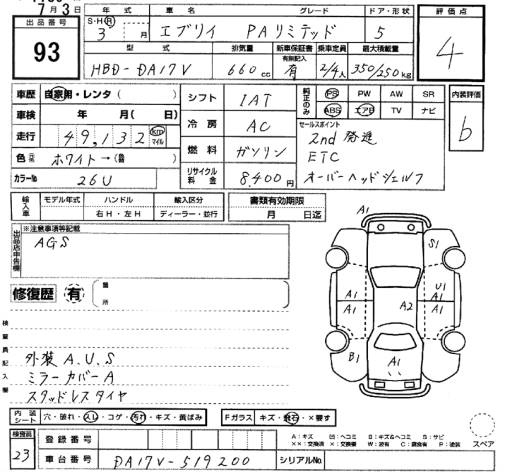 7月3日
出品番号
93
年式 車名 グレード ドア・形状
S・H・R 3年 月 エブリイ PAリミテッド 5
型式 排気量 新車保証書 乗車定員 最大積載量
有無記入
HBD-DA17V 660cc 有 2/4人 350/250kg
評価点
4
車歴 自家用・レンタ( )
車検 年 月( 日)
走行 49,132 km マイル
色 ホワイト→( )
カラーNo 26U
シフト IAT
冷房 AC
燃料 ガソリン
リサイクル料金 8,400円
純正のみ PS PW AW SR
ABS エアB TV ナビ
セールスポイント
2nd発進
ETC
オーバーヘッドシェルフ
内装評価
b
輸入車 モデル年式 ハンドル 輸入区分
右H・左H ディーラー・並行
書類有効期限
月 日迄
出品店申告欄
※注意事項等記載
AGS
修復歴 有 箇所
検査員記入欄
外装 A.U.S
ミラーカバーA
スタッドレスタイヤ
A1
S1
A1 U1
A1 A2 A1
B1 A1
内装シート 穴・破れ・スレ・コゲ・汚れ・キズ・黄ばみ
Fガラス キズ・飛石・×要す
スペア
A:キズ U:ヘコミ B:キズ&ヘコミ S:サビ
××:交換済 ×:交換要 W:波有 C:腐食有 P:塗装
検査員
23
登録番号
車台番号 DA17V-519200 シリアルNo